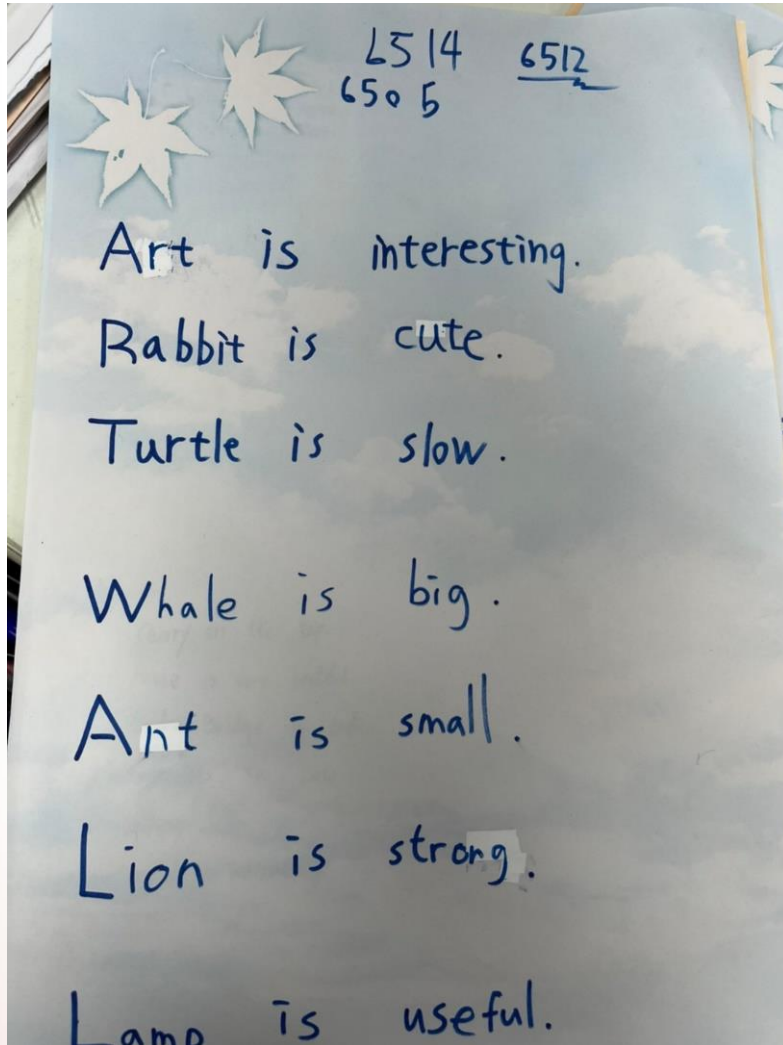 6514 6512
6505
Art is interesting.
Rabbit is cute.
Turtle is slow.
Whale is big.
Ant is small.
Lion is strong.
Lamp is useful.